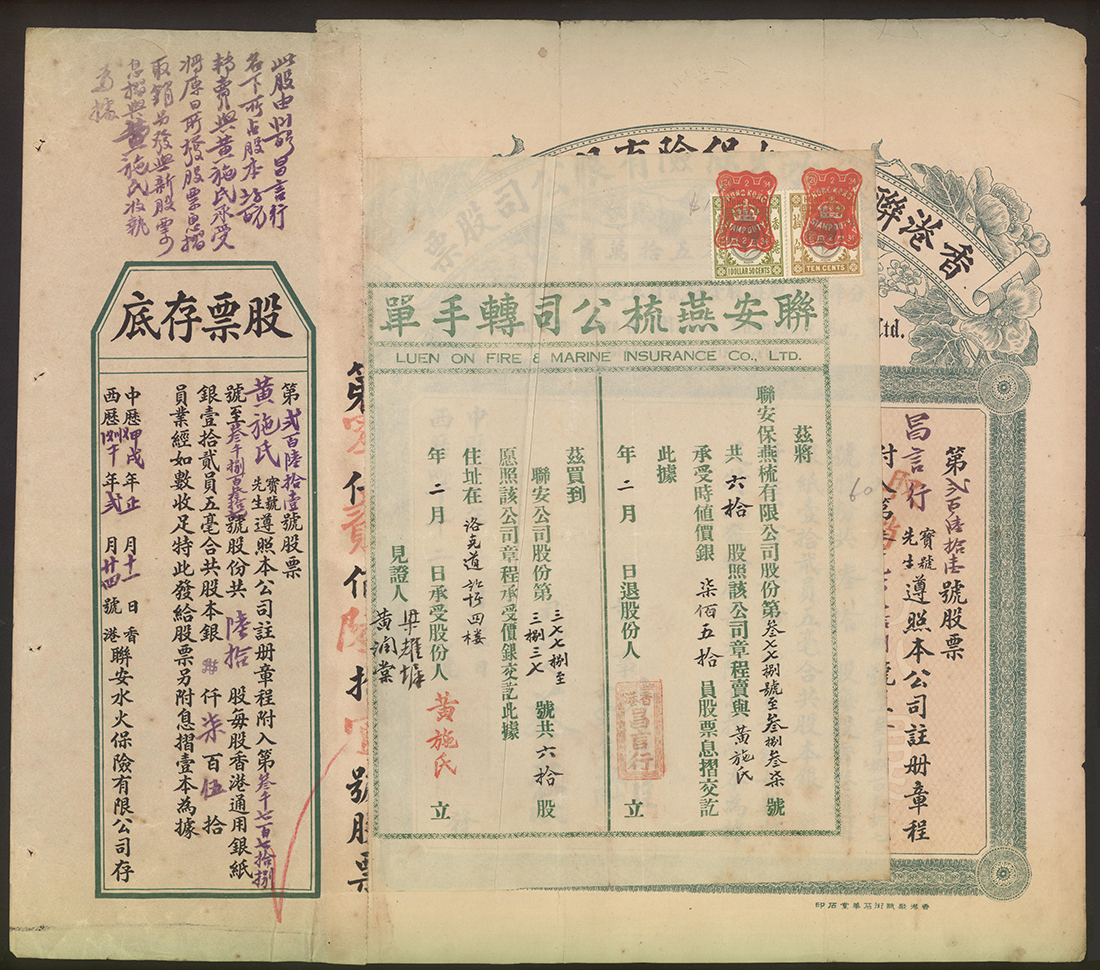 此股由
昌言行
名下所占股本
轉賣與黃施氏承受
將原日所發股票息摺
取銷另發與新股票
息摺與黃施氏收執
為據
股票存底
第貳百陸拾壹號股票
黃施氏寶號先生遵照本公司註册章程附入第叁千七百七拾捌
號至叁千捌百叁拾柒號股份共陸拾股每股香港通用銀紙
銀壹拾貳員五毫合共股本銀仟柒百伍拾
員業經如數收足特此發給股票另附息摺壹本為據
中歷甲戌年正月十一日香
西歷年貳月廿四號港
聯安水火保險有限公司存
號股票
HONG KONG
STAMP DUTY
1 DOLLAR 50 CENTS
HONG KONG
STAMP DUTY
TEN CENTS
聯安燕梳公司轉手單
LUEN ON FIRE & MARINE INSURANCE Co., LTD.
茲將
聯安保燕梳有限公司股份第叁七七捌號至叁捌叁柒號
共六拾股照該公司章程賣與黃施氏
承受時値價銀柒佰五拾員股票息摺交訖
此據
年二月日退股份人立
香港昌言行
茲買到
聯安公司股份第三七七捌至三捌三七號共六拾股
愿照該公司章程承受價銀交訖此據
住址在洛克道四樓
年二月二日承受股份人黃施氏立
見證人
黃潤棠
香港聯
保險有限公司
股票
Ltd.
第貳百陸拾壹號股票
昌言行寶號先生遵照本公司註册章程
付入第
60